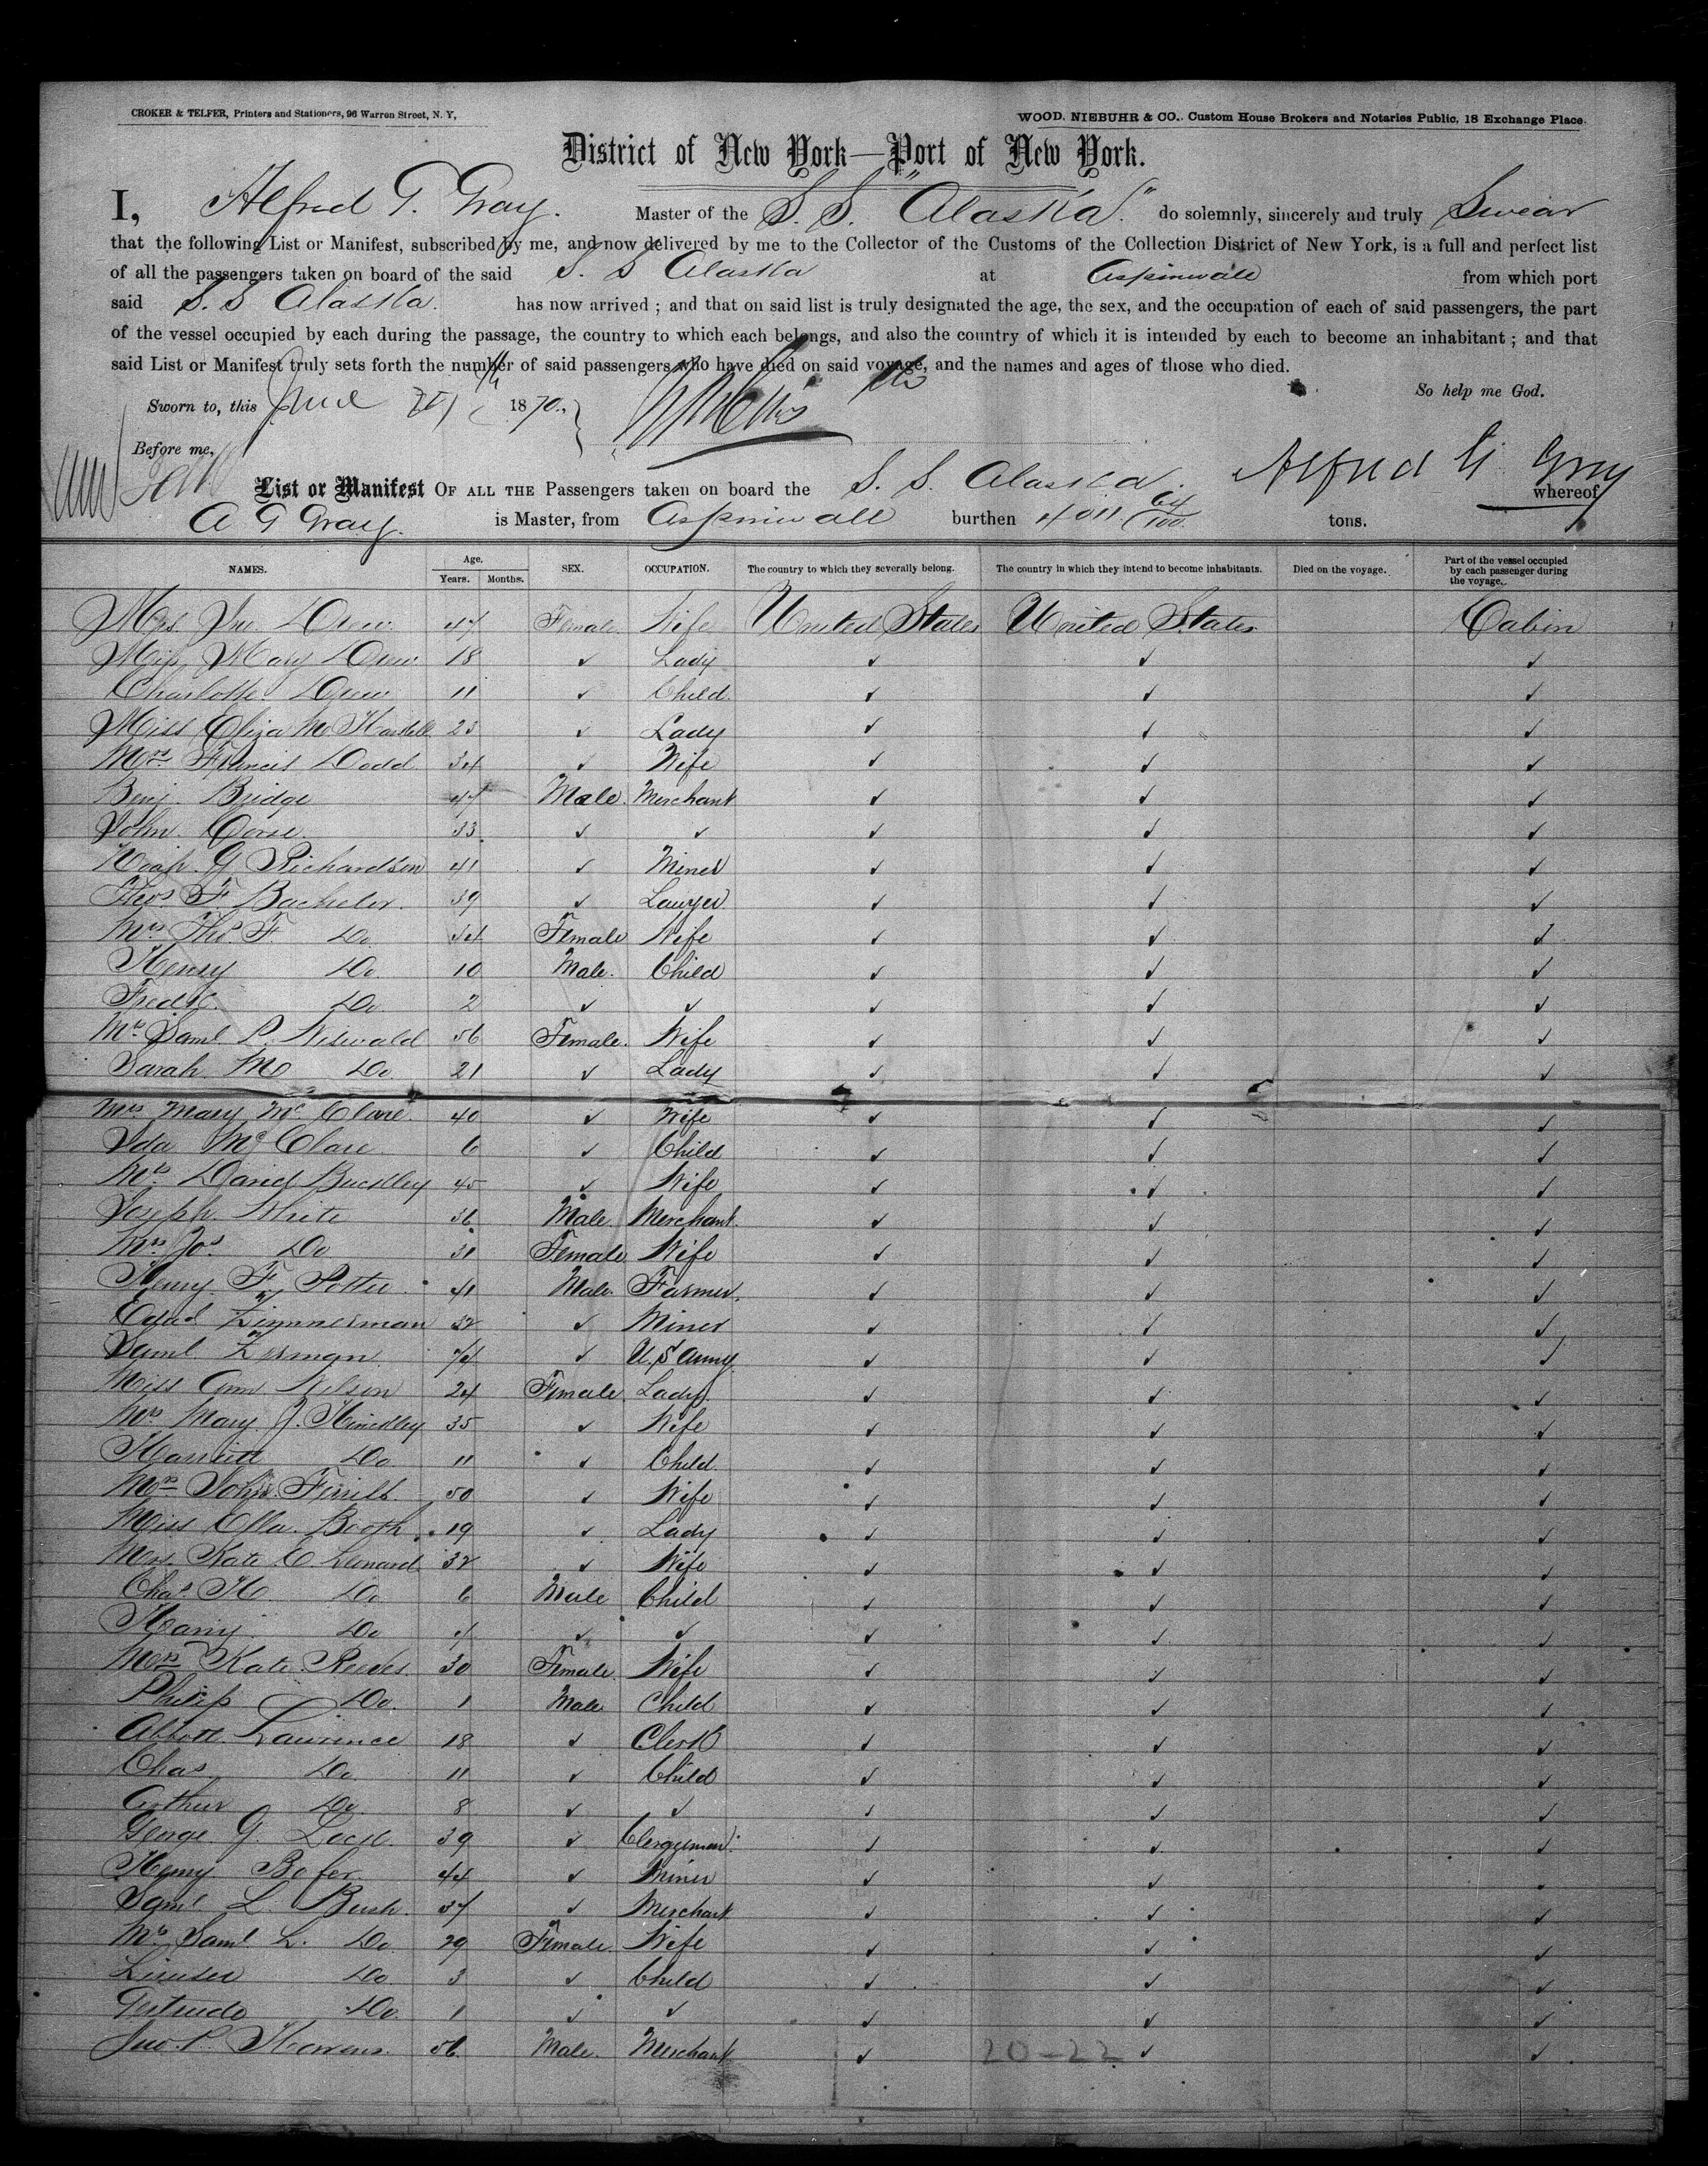 CROKER & TELFER, Printers and Stationers, 96 Warren Street, N. Y,
WOOD, NIEBUHR & CO., Custom House Brokers and Notaries Public, 18 Exchange Place.
District of New York—Port of New York.
I, Alfred G. Gray. Master of the S. S. "Alaska." do solemnly, sincerely and truly Swear
that the following List or Manifest, subscribed by me, and now delivered by me to the Collector of the Customs of the Collection District of New York, is a full and perfect list
of all the passengers taken on board of the said S. S Alaska at Aspinwall from which port
said S. S Alaska. has now arrived ; and that on said list is truly designated the age, the sex, and the occupation of each of said passengers, the part
of the vessel occupied by each during the passage, the country to which each belongs, and also the country of which it is intended by each to become an inhabitant ; and that
said List or Manifest truly sets forth the number of said passengers who have died on said voyage, and the names and ages of those who died.
So help me God.
Sworn to, this June 1870.
Before me,
Alfred G Gray
List or Manifest OF ALL THE Passengers taken on board the S. S. Alaska. whereof
A G Gray. is Master, from Aspinwall burthen 4011 64/100 tons.
NAMES. Age. Years. Months. SEX. OCCUPATION. The country to which they severally belong. The country in which they intend to become inhabitants. Died on the voyage. Part of the vessel occupied by each passenger during the voyage.
Mrs. Jno. Drew 47 Female. Wife United States United States Cabin
Miss Mary Drew 18 ✓ Lady ✓ ✓ ✓
Charlotte Drew 11 ✓ Child. ✓ ✓ ✓
Miss Eliza M 23 ✓ Lady ✓ ✓ ✓
Mrs Francis Dodd 34 ✓ Wife ✓ ✓ ✓
Benj. Bridge 47 Male. Merchant ✓ ✓ ✓
John. Corse. 33 ✓ ✓ ✓ ✓ ✓
Noah. G Richardson 41 ✓ Miner ✓ ✓ ✓
Thos F. Bachelor. 39 ✓ Lawyer ✓ ✓ ✓
Mrs Tho. F. Do. 34 Female Wife ✓ ✓ ✓
Henry Do. 10 Male. Child ✓ ✓ ✓
Fredk. Do. 2 ✓ ✓ ✓ ✓ ✓
Mrs Saml. P. 56 Female. Wife ✓ ✓ ✓
Sarah M Do 21 ✓ Lady ✓ ✓ ✓
Mrs Mary Mc Clare. 40 ✓ Wife ✓ ✓ ✓
Ida Mc Clare. 6 ✓ Child ✓ ✓ ✓
Mrs. David Buckley 45 ✓ Wife ✓ ✓ ✓
Joseph. White 36 Male Merchant. ✓ ✓ ✓
Mrs Jos. Do 31 Female Wife ✓ ✓ ✓
Henry. F. Potter. 41 Male. Farmer. ✓ ✓ ✓
Edwd Zimmerman 32 ✓ Miner ✓ ✓ ✓
Saml. ✓ U. S Army. ✓ ✓ ✓
Miss Ann Nelson 24 Female. Lady. ✓ ✓ ✓
Mrs. Mary J. Hinckley 35 ✓ Wife ✓ ✓ ✓
Harriett Do. 11 ✓ Child. ✓ ✓ ✓
Mrs John. 50 ✓ Wife ✓ ✓ ✓
Miss Ella. Booth. 19 ✓ Lady ✓ ✓ ✓
Mrs. Kate C. Leonard 32 ✓ Wife ✓ ✓ ✓
Chas. H. Do 6 Male Child ✓ ✓ ✓
Harry. Do 4 ✓ ✓ ✓ ✓ ✓
Mrs Kate. Reeves. 30 Female. Wife ✓ ✓ ✓
Philip Do. 1 Male Child ✓ ✓ ✓
Abbott. Lawrence 18 ✓ Clerk ✓ ✓ ✓
Chas Do. 11 ✓ Child ✓ ✓ ✓
Arthur Do. 8 ✓ ✓ ✓ ✓ ✓
George. G. Lock. 39 ✓ Clergyman. ✓ ✓ ✓
Henry. Bofer 44 ✓ Miner ✓ ✓
Saml L. Bush. 37 ✓ Merchant ✓ ✓ ✓
Mrs Saml L. Do. 29 Female. Wife ✓ ✓ ✓
Do. 3 ✓ Child ✓ ✓ ✓
Gertrude Do. 1 ✓ ✓ ✓ ✓ ✓
Jno. P. 56. Male. Merchant ✓ ✓ ✓
20-22